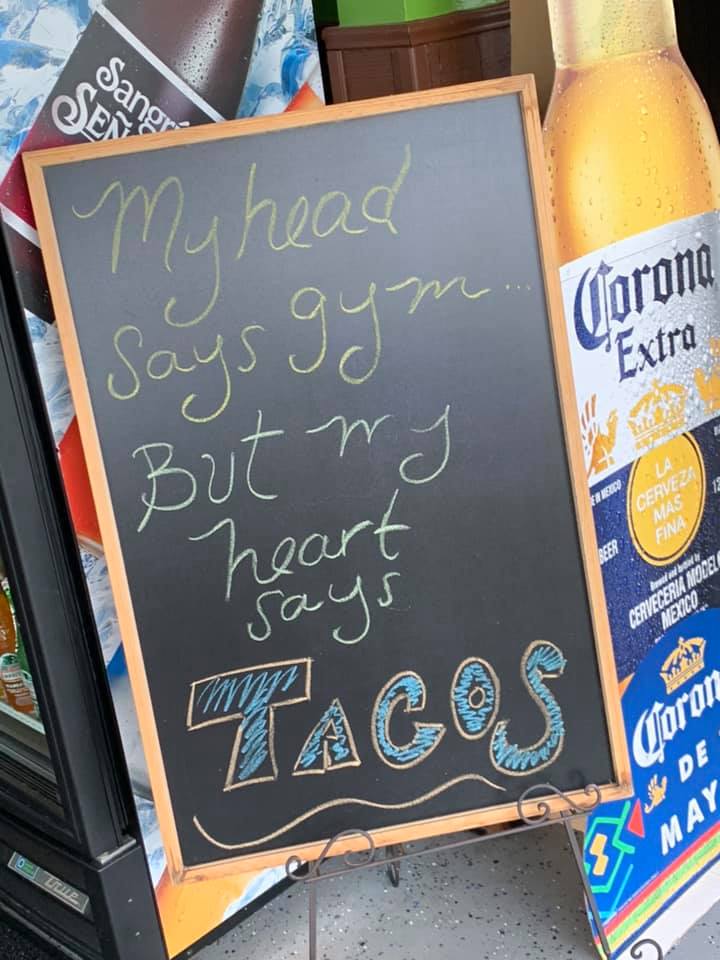 Sangri
SEÑ
My head
says gym...
But my
heart
says
TACOS
Corona
Extra
LA
CERVEZA
MAS
FINA
BEER
Brewed and bottled by
CERVECERIA MODEL
MEXICO
Coron
DE
MAY